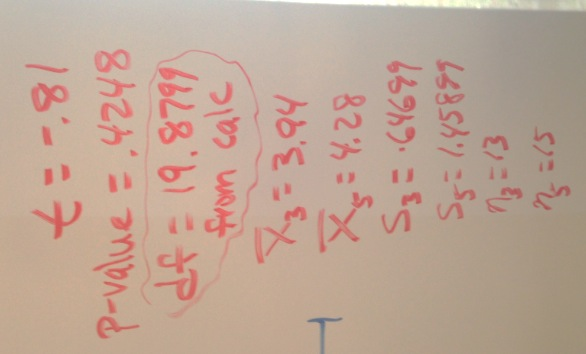 t = -.81
p-value = .4248
df = 19.8799
from calc
X̄₃ = 3.94
X̄₅ = 4.28
S₃ = .64699
S₅ = 1.45899
n₃ = 13
n₅ = 15